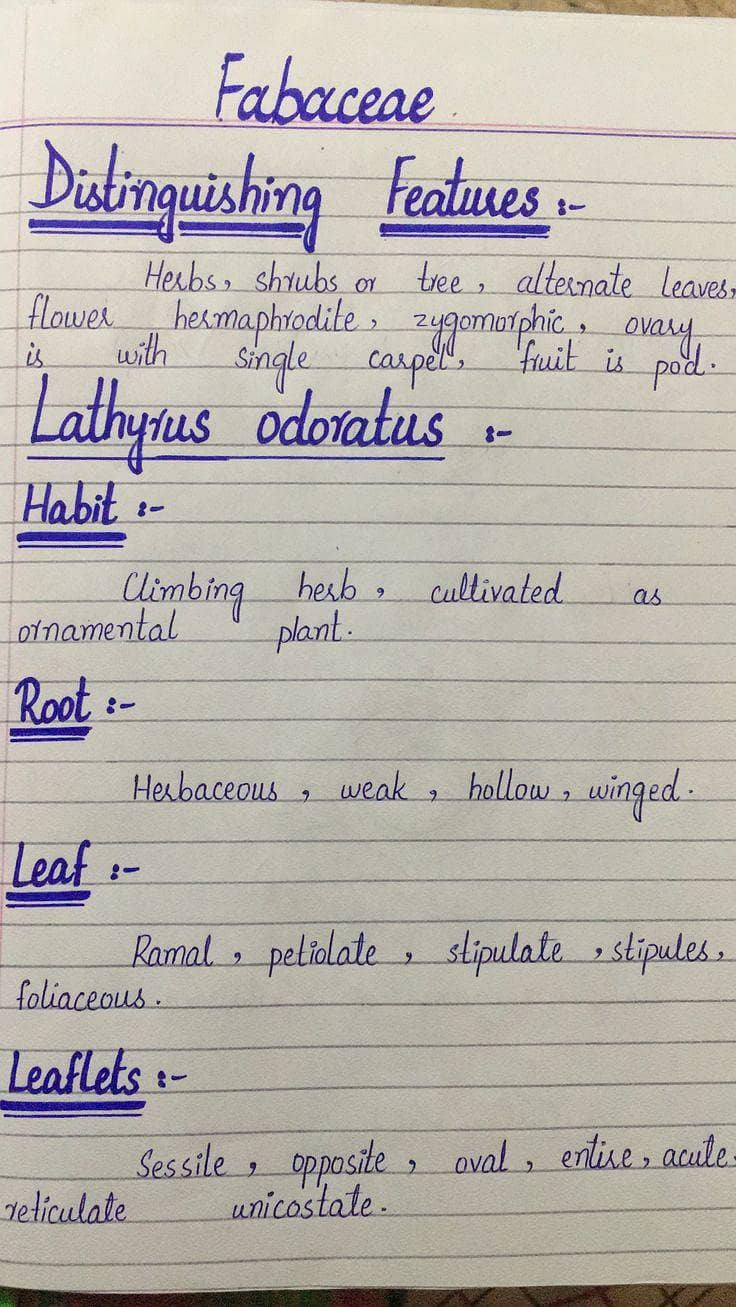 Fabaceae
Distinguishing Features :-
Herbs, shrubs or tree, alternate leaves,
flower hermaphrodite, zygomorphic, ovary
is with single carpel, fruit is pod.
Lathyrus odoratus :-
Habit :-
Climbing herb, cultivated as
ornamental plant.
Root :-
Herbaceous, weak, hollow, winged.
Leaf :-
Ramal, petiolate, stipulate, stipules,
foliaceous.
Leaflets :-
Sessile, opposite, oval, entire, acute,
reticulate unicostate.